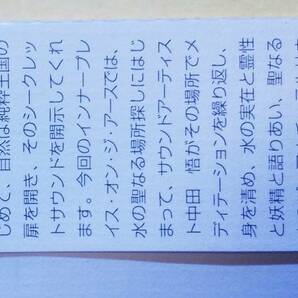 じめて、自然は純粋王国の
扉を開き、そのシークレッ
トサウンドを開示してくれ
ます。今回のインナープレ
イス・オン・ジ・アースでは、
水の聖なる場所探しにはじ
まって、サウンドアーティス
ト中田 悟がその場所でメ
ディテーションを繰り返し、
身を清め、水の実在と霊性
と妖精と語りあい、聖なる